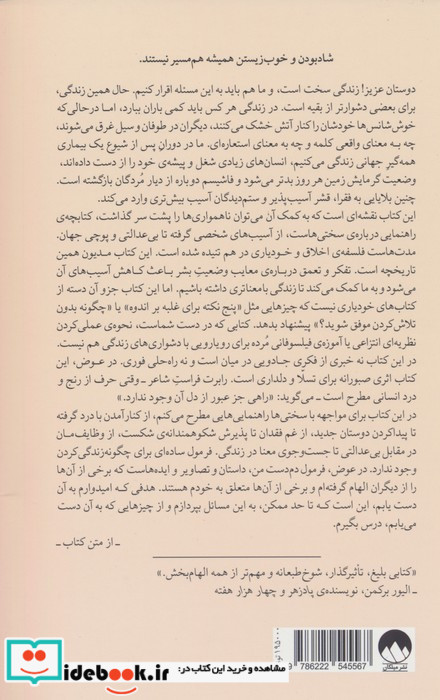 شادبودن و خوب‌زیستن همیشه هم‌مسیر نیستند.
دوستان عزیز! زندگی سخت است، و ما هم باید به این مسئله اقرار کنیم. حال همین زندگی،
برای بعضی دشوارتر از بقیه است. در زندگی هر کس باید کمی باران ببارد، اما درحالی‌که
خوش‌شانس‌ها خودشان را کنار آتش خشک می‌کنند، دیگران در طوفان و سیل غرق می‌شوند،
چه به معنای واقعی کلمه و چه به معنای استعاره‌ای. ما در دوران پس از شیوع یک بیماری
همه‌گیر جهانی زندگی می‌کنیم، انسان‌های زیادی شغل و پیشه‌ی خود را از دست داده‌اند،
وضعیت گرمایش زمین هر روز بدتر می‌شود و فاشیسم دوباره از دیار مُردگان بازگشته است.
چنین بلایایی به فقرا، قشر آسیب‌پذیر و ستم‌دیدگان آسیب بیش‌تری وارد می‌کند.
این کتاب نقشه‌ای است که به کمک آن می‌توان ناهمواری‌ها را پشت سر گذاشت، کتابچه‌ی
راهنمایی درباره‌ی سختی‌هاست، از آسیب‌های شخصی گرفته تا بی‌عدالتی و پوچی جهان.
مدت‌هاست فلسفه‌ی اخلاق و خودیاری در هم تنیده شده است. این کتاب مدیون همین
تاریخچه است. تفکر و تعمق درباره‌ی معایب وضعیتِ بشر باعث کاهش آسیب‌های آن
می‌شود و به ما کمک می‌کند تا زندگی بامعناتری داشته باشیم. اما این کتاب جزو آن دسته از
کتاب‌های خودیاری نیست که چیزهایی مثل «پنج نکته برای غلبه بر اندوه» یا «چگونه بدون
تلاش‌کردن موفق شوید؟» پیشنهاد بدهد. کتابی که در دست شماست، نحوه‌ی عملی‌کردن
نظریه‌ای انتزاعی یا آموزه‌ی فیلسوفانی مُرده برای رویارویی با دشواری‌های زندگی هم نیست.
در این کتاب نه خبری از فکریِ جادویی در میان است و نه راه‌حلی فوری. در عوض، این
کتاب اثری صبورانه برای تسلّا و دلداری است. رابرت فراستِ شاعر ـ وقتی حرف از رنج و
درد انسانی مطرح است ـ می‌گوید: «راهی جز عبور از دل آن وجود ندارد.»
در این کتاب برای مواجهه با سختی‌ها راهنمایی‌هایی مطرح می‌کنم، از کنارآمدن با درد گرفته
تا پیداکردن دوستان جدید، از غم فقدان تا پذیرش شکوهمندانه‌ی شکست، از وظایف‌مان
در مقابل بی‌عدالتی تا جست‌وجوی معنا در زندگی. فرمول ساده‌ای برای چگونه‌زندگی‌کردن
وجود ندارد. در عوض، فرمول دم‌دست من، داستان و تصاویر و ایده‌هاست که برخی از آن‌ها
را از دیگران الهام گرفته‌ام و برخی از آن‌ها متعلق به خودم هستند. هدفی که امیدوارم به آن
دست یابم، این است که تا حد ممکن، به این مسائل بپردازم و از چیزهایی که به آن دست
می‌یابم، درس بگیرم.
ـ از متن کتاب ـ
«کتابی بلیغ، تأثیرگذار، شوخ‌طبعانه و مهم‌تر از همه الهام‌بخش.»
ـ الیور برکمن، نویسنده‌ی پادزهر و چهار هزار هفته
۱۹۵۰۰۰ تو
9 786222 545567
نشر میلکان
idebook.ir
مشاهده و خرید این کتاب در: